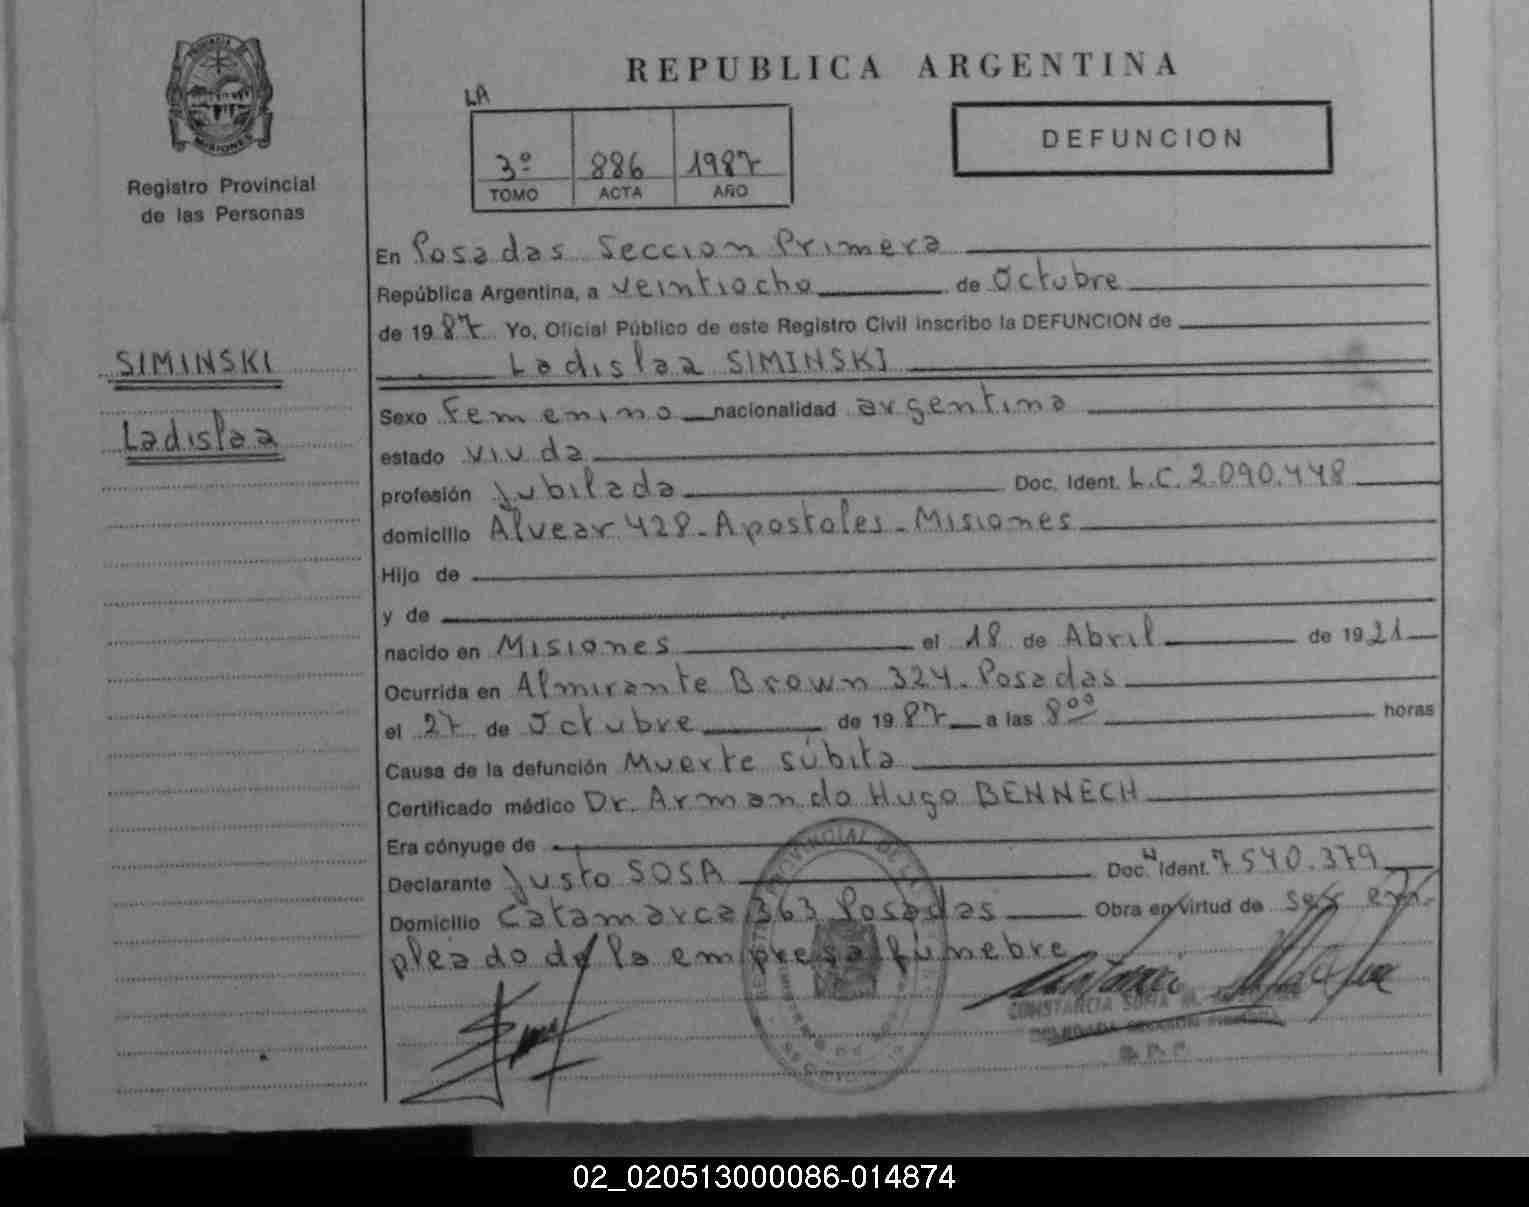 REPUBLICA ARGENTINA
PROVINCIA DE
MISIONES
Registro Provincial
de las Personas
LA
3º 886 1987
TOMO ACTA AÑO
DEFUNCION
SIMINSKI
Ladislaa
En Posadas Seccion Primera
República Argentina, a veintiocho de Octubre
de 1987 Yo, Oficial Público de este Registro Civil inscribo la DEFUNCION de
Ladislaa SIMINSKI
Sexo Femenino nacionalidad argentina
estado viuda
profesión jubilada Doc. Ident. L.C. 2.090.448
domicilio Alvear 428 - Apostoles - Misiones
Hijo de
y de
nacido en Misiones el 18 de Abril de 1921
Ocurrida en Almirante Brown 324 - Posadas
el 27 de Octubre de 1987 a las 8⁰⁰ horas
Causa de la defunción Muerte súbita
Certificado médico Dr. Armando Hugo BENNECH
Era cónyuge de
Declarante Justo SOSA Doc. Ident. 7.540.379
Domicilio Catamarca 363 Posadas Obra en virtud de ser em-
pleado de la empresa fúnebre
CONSTANCIA SOFIA
02_020513000086-014874